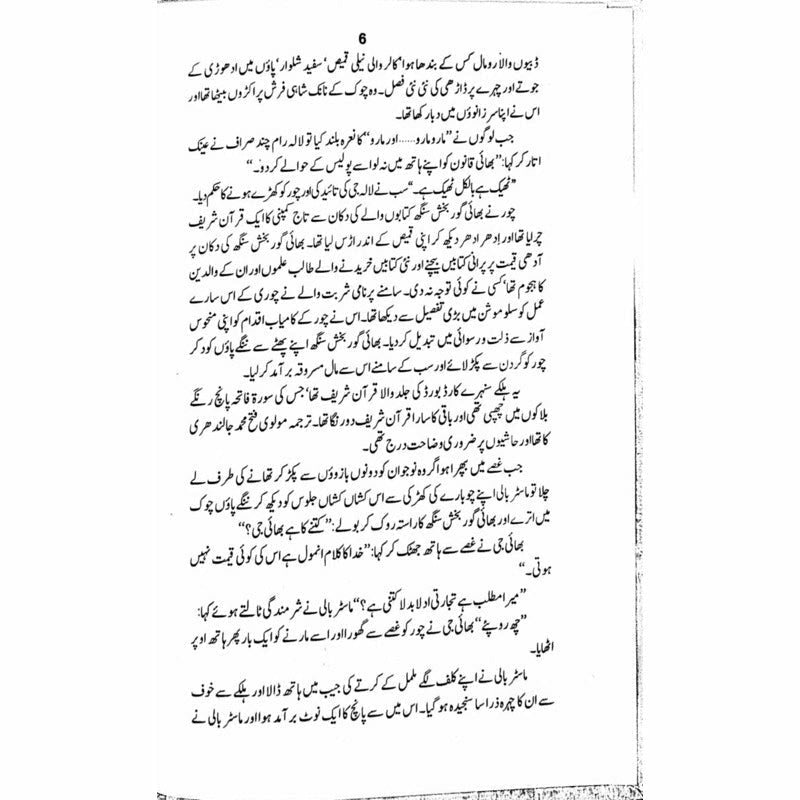 6
ڈبیوں والا رومال کس کے بندھا ہوا‘ کالر والی نیلی قمیص‘ سفید شلوار‘ پاؤں میں ادھوڑی کے
جوتے اور چہرے پر ڈاڑھی کی نئی نئی فصل۔ وہ چوک کے نانک شاہی فرش پر اکڑوں بیٹھا تھا اور
اس نے اپنا سر زانوؤں میں دبا رکھا تھا۔
جب لوگوں نے ’’مارو مارو...... اور مارو‘‘ کا نعرہ بلند کیا تو لالہ رام چند صراف نے عینک
اتار کر کہا: ’’بھائی قانون کو اپنے ہاتھ میں نہ لو اسے پولیس کے حوالے کر دو۔‘‘
’’ٹھیک ہے بالکل ٹھیک ہے۔‘‘ سب نے لالہ جی کی تائید کی اور چور کو کھڑے ہونے کا حکم دیا۔
چور نے بھائی گور بخش سنگھ کتابوں والے کی دکان سے تاج کمپنی کا ایک قرآن شریف
چرا لیا تھا اور ادھر ادھر دیکھ کر اپنی قمیص کے اندر اڑس لیا تھا۔ بھائی گور بخش سنگھ کی دکان پر
آدھی قیمت پر پرانی کتابیں بیچنے اور نئی کتابیں خریدنے والے طالب علموں اور ان کے والدین
کا ہجوم تھا‘ کسی نے کوئی توجہ نہ دی۔ سامنے پرنامی شربت والے نے چوری کے اس سارے
عمل کو سلو موشن میں بڑی تفصیل سے دیکھا تھا۔ اس نے چور کے کامیاب اقدام کو اپنی منحوس
آواز سے ذلت و رسوائی میں تبدیل کر دیا۔ بھائی گور بخش سنگھ اپنے پھٹے سے ننگے پاؤں کود کر
چور کو گردن سے پکڑ لائے اور سب کے سامنے اس سے مال مسروقہ برآمد کر لیا۔
یہ ہلکے سنہرے کارڈ بورڈ کی جلد والا قرآن شریف تھا‘ جس کی سورۃ فاتحہ پانچ رنگے
بلاکوں میں چھپی تھی اور باقی کا سارا قرآن شریف دو رنگا تھا۔ ترجمہ مولوی فتح محمد جالندھری
کا تھا اور حاشیوں پر ضروری وضاحت درج تھی۔
جب غصے میں بپھرا ہوا گروہ نوجوان کو دونوں بازوؤں سے پکڑ کر تھانے کی طرف لے
چلا تو ماسٹر بالی اپنے چوبارے کی کھڑکی سے اس کشاں کشاں جلوس کو دیکھ کر ننگے پاؤں چوک
میں اترے اور بھائی گور بخش سنگھ کا راستہ روک کر بولے: ’’کتنے کا ہے بھائی جی؟‘‘
بھائی جی نے غصے سے ہاتھ جھٹک کر کہا: ’’خدا کا کلام انمول ہے اس کی کوئی قیمت نہیں
ہوتی۔‘‘
’’میرا مطلب ہے تجارتی ادلا بدلا کتنی ہے؟‘‘ ماسٹر بالی نے شرمندگی ٹالتے ہوئے کہا:
’’چھ روپئے‘‘ بھائی جی نے چور کو غصے سے گھورا اور اسے مارنے کو ایک بار پھر ہاتھ اوپر
اٹھایا۔
ماسٹر بالی نے اپنے کلف لگے ململ کے کرتے کی جیب میں ہاتھ ڈالا اور ہلکے سے خوف
سے ان کا چہرہ ذرا سا سنجیدہ ہو گیا۔ اس میں سے پانچ کا ایک نوٹ برآمد ہوا اور ماسٹر بالی نے